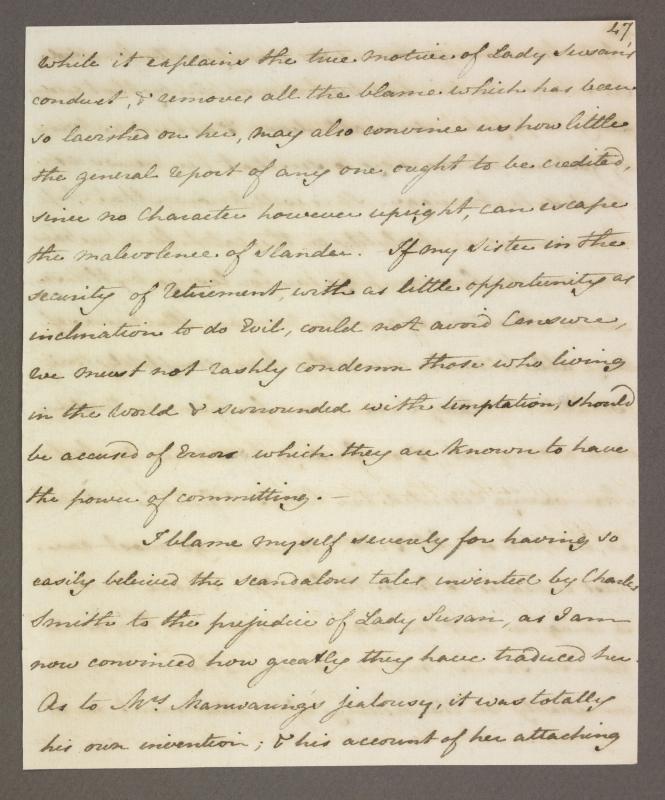 47
while it explains the true motive of Lady Susan's
conduct, & removes all the blame which has been
so lavished on her, may also convince us how little
the general report of any one ought to be credited,
since no Character however upright, can escape
the malevolence of slander. If my Sister in the
security of retirement, with as little opportunity as
inclination to do Evil, could not avoid Censure,
we must not rashly condemn those who living
in the World & surrounded with temptation, should
be accused of Errors which they are known to have
the power of committing. –
I blame myself severely for having so
easily beleived the scandalous tales invented by Charles
Smith to the prejudice of Lady Susan, as I am
now convinced how greatly they have traduced her.
As to Mrs Manwaring's jealousy, it was totally
his own invention; & his account of her attaching